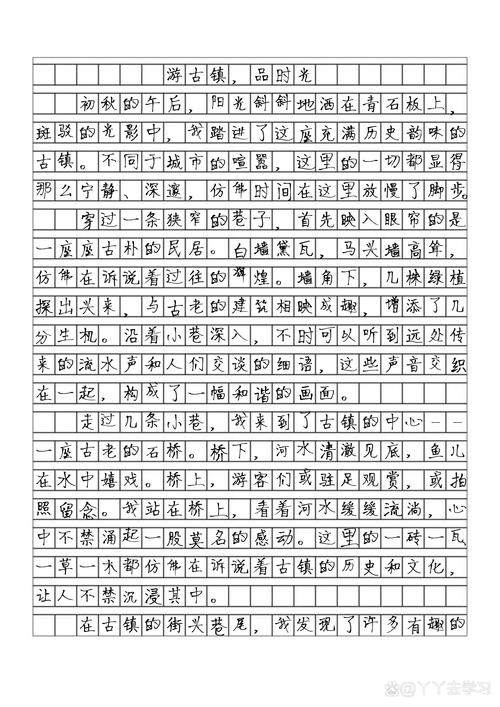 游古镇，品时光
初秋的午后，阳光斜斜地洒在青石板上，
斑驳的光影中，我踏进了这座充满历史韵味的
古镇。不同于城市的喧嚣，这里的一切都显得
那么宁静、深邃，仿佛时间在这里放慢了脚步。
穿过一条狭窄的巷子，首先映入眼帘的是
一座座古朴的民居。白墙黛瓦，马头墙高耸，
仿佛在诉说着过往的辉煌。墙角下，几株绿植
探出头来，与古老的建筑相映成趣，增添了几
分生机。沿着小巷深入，不时可以听到远处传
来的流水声和人们交谈的细语，这些声音交织
在一起，构成了一幅和谐的画面。
走过几条小巷，我来到了古镇的中心——
一座古老的石桥。桥下，河水清澈见底，鱼儿
在水中嬉戏。桥上，游客们或驻足观赏，或拍
照留念。我站在桥上，看着河水缓缓流淌，心
中不禁涌起一股莫名的感动。这里的一砖一瓦
一草一木都仿佛在诉说着古镇的历史和文化，
让人不禁沉浸其中。
在古镇的街头巷尾，我发现了许多有趣的
@丫丫去学习